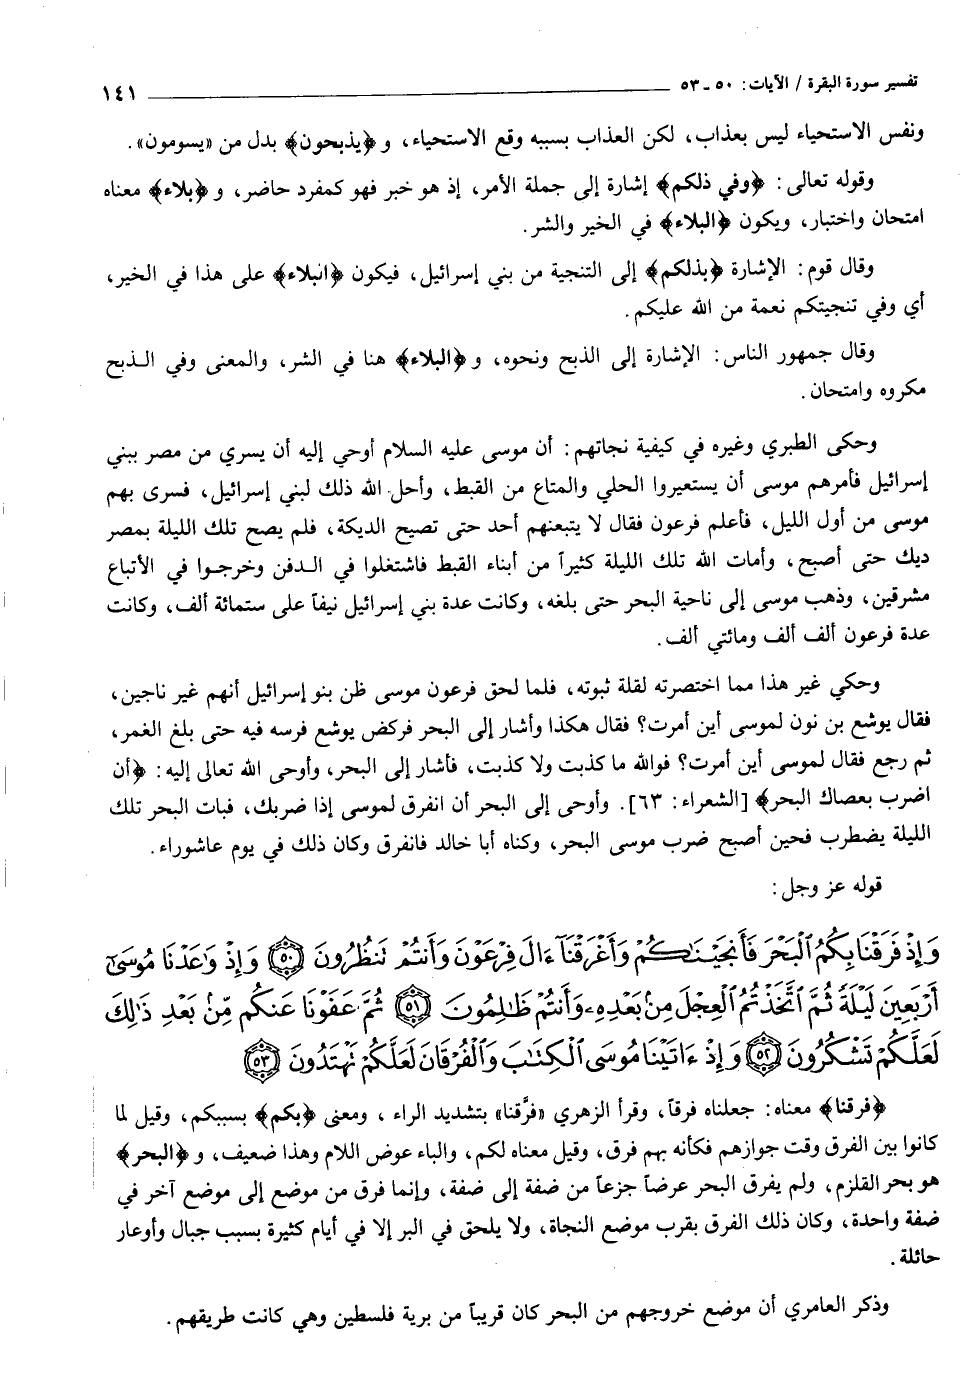 تفسير سورة البقرة / الآيات: ٥٠ ـ ٥٣ ١٤١
ونفس الاستحياء ليس بعذاب، لكن العذاب بسببه وقع الاستحياء، و ﴿يذبحون﴾ بدل من «يسومون».
وقوله تعالى: ﴿وفي ذلكم﴾ إشارة إلى جملة الأمر، إذ هو خبر فهو كمفرد حاضر، و ﴿بلاء﴾ معناه
امتحان واختبار، ويكون ﴿البلاء﴾ في الخير والشر.
وقال قوم: الإشارة ﴿بذلكم﴾ إلى التنجية من بني إسرائيل، فيكون ﴿البلاء﴾ على هذا في الخير،
أي وفي تنجيتكم نعمة من الله عليكم.
وقال جمهور الناس: الإشارة إلى الذبح ونحوه، و ﴿البلاء﴾ هنا في الشر، والمعنى وفي الـذبح
مكروه وامتحان.
وحكى الطبري وغيره في كيفية نجاتهم: أن موسى عليه السلام أوحي إليه أن يسري من مصر ببني
إسرائيل فأمرهم موسى أن يستعيروا الحلي والمتاع من القبط، وأحل الله ذلك لبني إسرائيل، فسرى بهم
موسى من أول الليل، فأعلم فرعون فقال لا يتبعنهم أحد حتى تصيح الديكة، فلم يصح تلك الليلة بمصر
ديك حتى أصبح، وأمات الله تلك الليلة كثيراً من أبناء القبط فاشتغلوا في الـدفن وخرجـوا في الأتباع
مشرقين، وذهب موسى إلى ناحية البحر حتى بلغه، وكانت عدة بني إسرائيل نيفاً على ستمائة ألف، وكانت
عدة فرعون ألف ألف ومائتي ألف.
وحكي غير هذا مما اختصرته لقلة ثبوته، فلما لحق فرعون موسى ظن بنو إسرائيل أنهم غير ناجين،
فقال يوشع بن نون لموسى أين أمرت؟ فقال هكذا وأشار إلى البحر فركض يوشع فرسه فيه حتى بلغ الغمر،
ثم رجع فقال لموسى أين أمرت؟ فوالله ما كذبت ولا كذبت، فأشار إلى البحر، وأوحى الله تعالى إليه: ﴿أن
اضرب بعصاك البحر﴾ [الشعراء: ٦٣]. وأوحى إلى البحر أن انفرق لموسى إذا ضربك، فبات البحر تلك
الليلة يضطرب فحين أصبح ضرب موسى البحر، وكناه أبا خالد فانفرق وكان ذلك في يوم عاشوراء.
قوله عز وجل:
وَإِذْ فَرَقْنَا بِكُمُ ٱلْبَحْرَ فَأَنجَيْنَٰكُمْ وَأَغْرَقْنَآ ءَالَ فِرْعَوْنَ وَأَنتُمْ نَنظُرُونَ ﴿٥٠﴾ وَإِذْ وَٰعَدْنَا مُوسَىٰٓ
أَرْبَعِينَ لَيْلَةً ثُمَّ ٱتَّخَذْتُمُ ٱلْعِجْلَ مِنۢ بَعْدِهِۦ وَأَنتُمْ ظَٰلِمُونَ ﴿٥١﴾ ثُمَّ عَفَوْنَا عَنكُم مِّنۢ بَعْدِ ذَٰلِكَ
لَعَلَّكُمْ تَشْكُرُونَ ﴿٥٢﴾ وَإِذْ ءَاتَيْنَا مُوسَى ٱلْكِتَٰبَ وَٱلْفُرْقَانَ لَعَلَّكُمْ تَهْتَدُونَ ﴿٥٣﴾
﴿فرقنا﴾ معناه: جعلناه فرقاً، وقرأ الزهري «فرَّقنا» بتشديد الراء ، ومعنى ﴿بكم﴾ بسببكم، وقيل لما
كانوا بين الفرق وقت جوازهم فكأنه بهم فرق، وقيل معناه لكم، والباء عوض اللام وهذا ضعيف، و ﴿البحر﴾
هو بحر القلزم، ولم يفرق البحر عرضاً جزعاً من ضفة إلى ضفة، وإنما فرق من موضع إلى موضع آخر في
ضفة واحدة، وكان ذلك الفرق بقرب موضع النجاة، ولا يلحق في البر إلا في أيام كثيرة بسبب جبال وأوعار
حائلة.
وذكر العامري أن موضع خروجهم من البحر كان قريباً من برية فلسطين وهي كانت طريقهم.